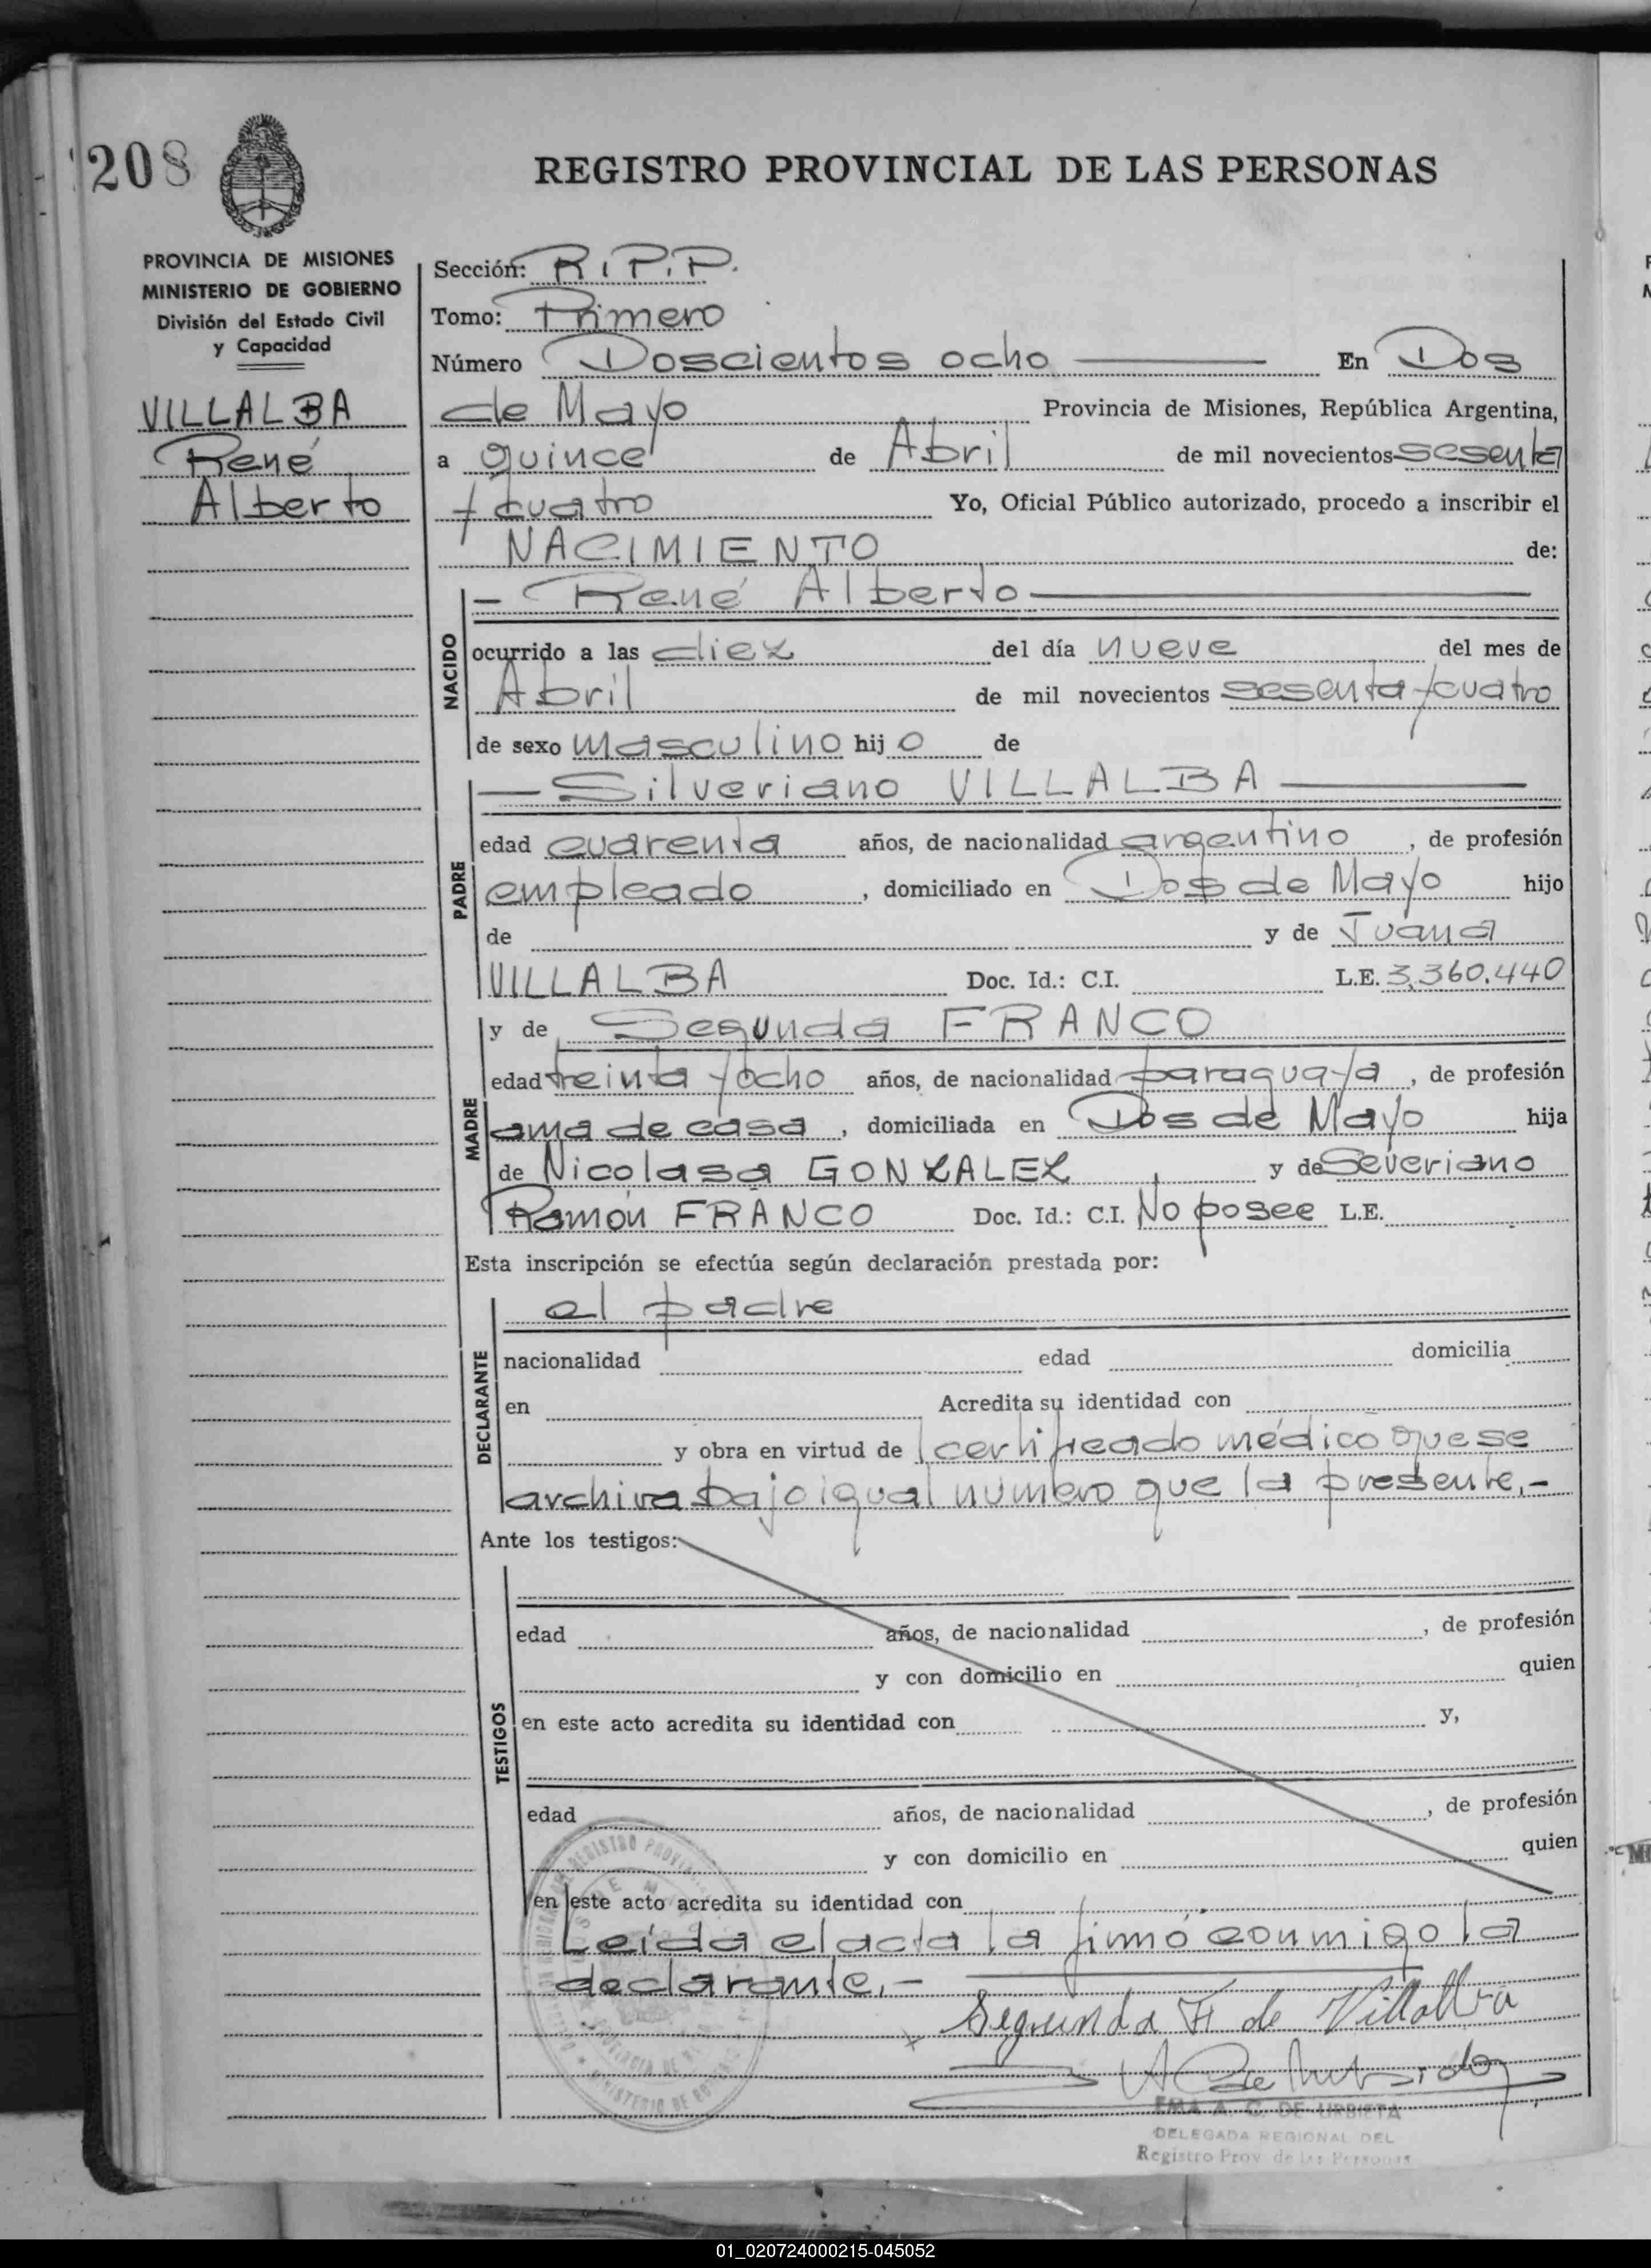 208
REGISTRO PROVINCIAL DE LAS PERSONAS
PROVINCIA DE MISIONES
MINISTERIO DE GOBIERNO
División del Estado Civil
y Capacidad
VILLALBA
René
Alberto
Sección: R.P.P.
Tomo: Primero
Número Doscientos ocho En Dos
de Mayo Provincia de Misiones, República Argentina,
a quince de Abril de mil novecientos sesenta
y cuatro Yo, Oficial Público autorizado, procedo a inscribir el
NACIMIENTO de:
NACIDO
- René Alberto
ocurrido a las diez del día nueve del mes de
Abril de mil novecientos sesenta y cuatro
de sexo masculino hijo de
PADRE
Silveriano VILLALBA
edad cuarenta años, de nacionalidad argentino, de profesión
empleado, domiciliado en Dos de Mayo hijo
de y de Juana
VILLALBA Doc. Id.: C.I. L.E. 3.360.440
MADRE
y de Segunda FRANCO
edad treinta y ocho años, de nacionalidad paraguaya, de profesión
ama de casa, domiciliada en Dos de Mayo hija
de Nicolasa GONZALEZ y de Severiano
Ramón FRANCO Doc. Id.: C.I. No posee L.E.
Esta inscripción se efectúa según declaración prestada por:
DECLARANTE
el padre
nacionalidad edad domicilia
en Acredita su identidad con
y obra en virtud de certificado médico que se
archiva bajo igual número que la presente.-
Ante los testigos:
TESTIGOS
edad años, de nacionalidad , de profesión
y con domicilio en quien
en este acto acredita su identidad con y,
edad años, de nacionalidad , de profesión
y con domicilio en quien
en este acto acredita su identidad con
Leída el acta la firmó conmigo la
declarante.-
Segunda F. de Villalba
EMA A. C. DE URBIETA
DELEGADA REGIONAL DEL
Registro Prov. de las Personas
01_020724000215-045052